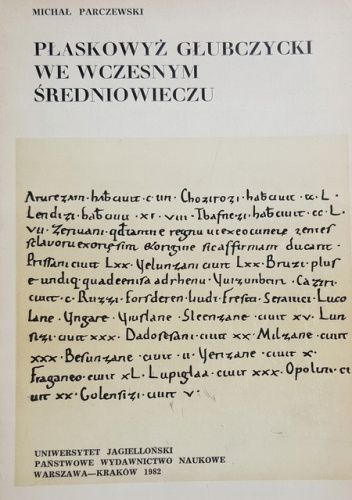 MICHAŁ PARCZEWSKI
PŁASKOWYŻ GŁUBCZYCKI
WE WCZESNYM
ŚREDNIOWIECZU
Aturezani · habent · c · iiii · Chozirozi · habent · cc L ·
Lendizi · habent · xc · viii · Thafnezi · habent · cc · L ·
vii · Zeriuani · qd tantum e regnu ut ex eo cunctę zentes
sclavorum exorte sint & origine sic affirmant ducant ·
Prissani ciuit Lxx · Velunzani ciuit Lxx · Bruzi · plus
e undiq · quadeenisa adrhenu · Vuizunbeire · Caziri
ciuit · c · Ruzzi · Forsderen liudi · Fresiti · Serauici · Luco
lane · Vngare · Vuislane · Sleenzane · ciuit · xv · Lun
sizi · ciuit xxx · Dadosesani · ciuit · xx · Milzane · ciuit
xxx · Besunzane · ciuit · ii · Verizane · ciuit · x ·
Fraganeo · ciuit · xL · Lupiglaa · ciuit xxx · Opolini · ci
uit xx · Golensizi · ciuit v ·
UNIWERSYTET JAGIELLOŃSKI
PAŃSTWOWE WYDAWNICTWO NAUKOWE
WARSZAWA—KRAKÓW 1982